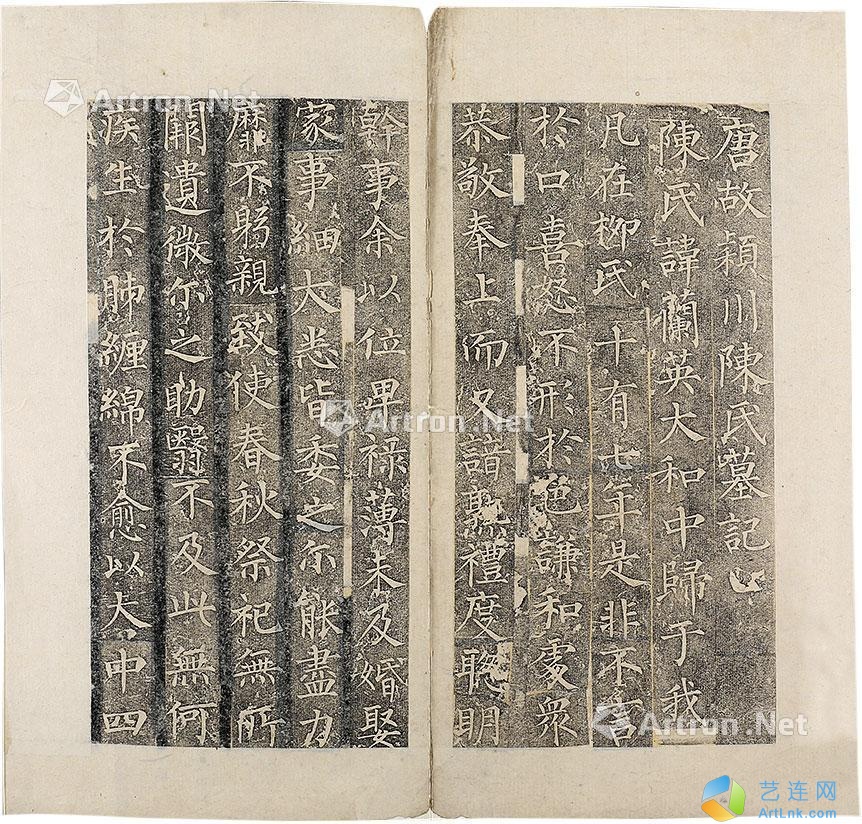 唐故潁川陳氏墓記
陳氏諱蘭英大和中歸于我
凡在柳氏十有七年是非不言
於口喜怒不形於色謙和處眾
恭敬奉上而又諳熟禮度聰明
幹事余以位卑祿薄未及婚娶
家事細大悉皆委之尓能盡力
靡不躬親致使春秋祭祀無所
闕遺微尓之助翳不及此無何
疾生於肺纏綿不愈以大中四
Artron.Net
Artron.Net
Artron.Net
艺连网
ArtLnk.com